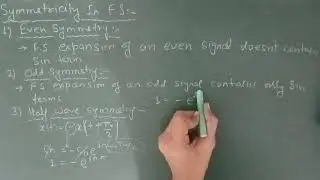 Symmetricity In FS:-
1) Even Symmetry:-
FS expansion of an even signal doesnt contain
Sin term
2) Odd Symmetry:-
FS expansion of an odd signal contains only Sin
terms
3) Half Wave Symmetry-
1 = - e
x(t) =
1 = - e